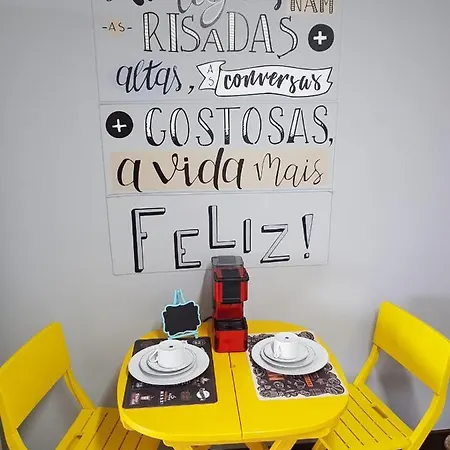 NAM
-AS- RISADAS +
altas, AS conversas
+ GOSTOSAS,
a vida Mais
FELIZ!